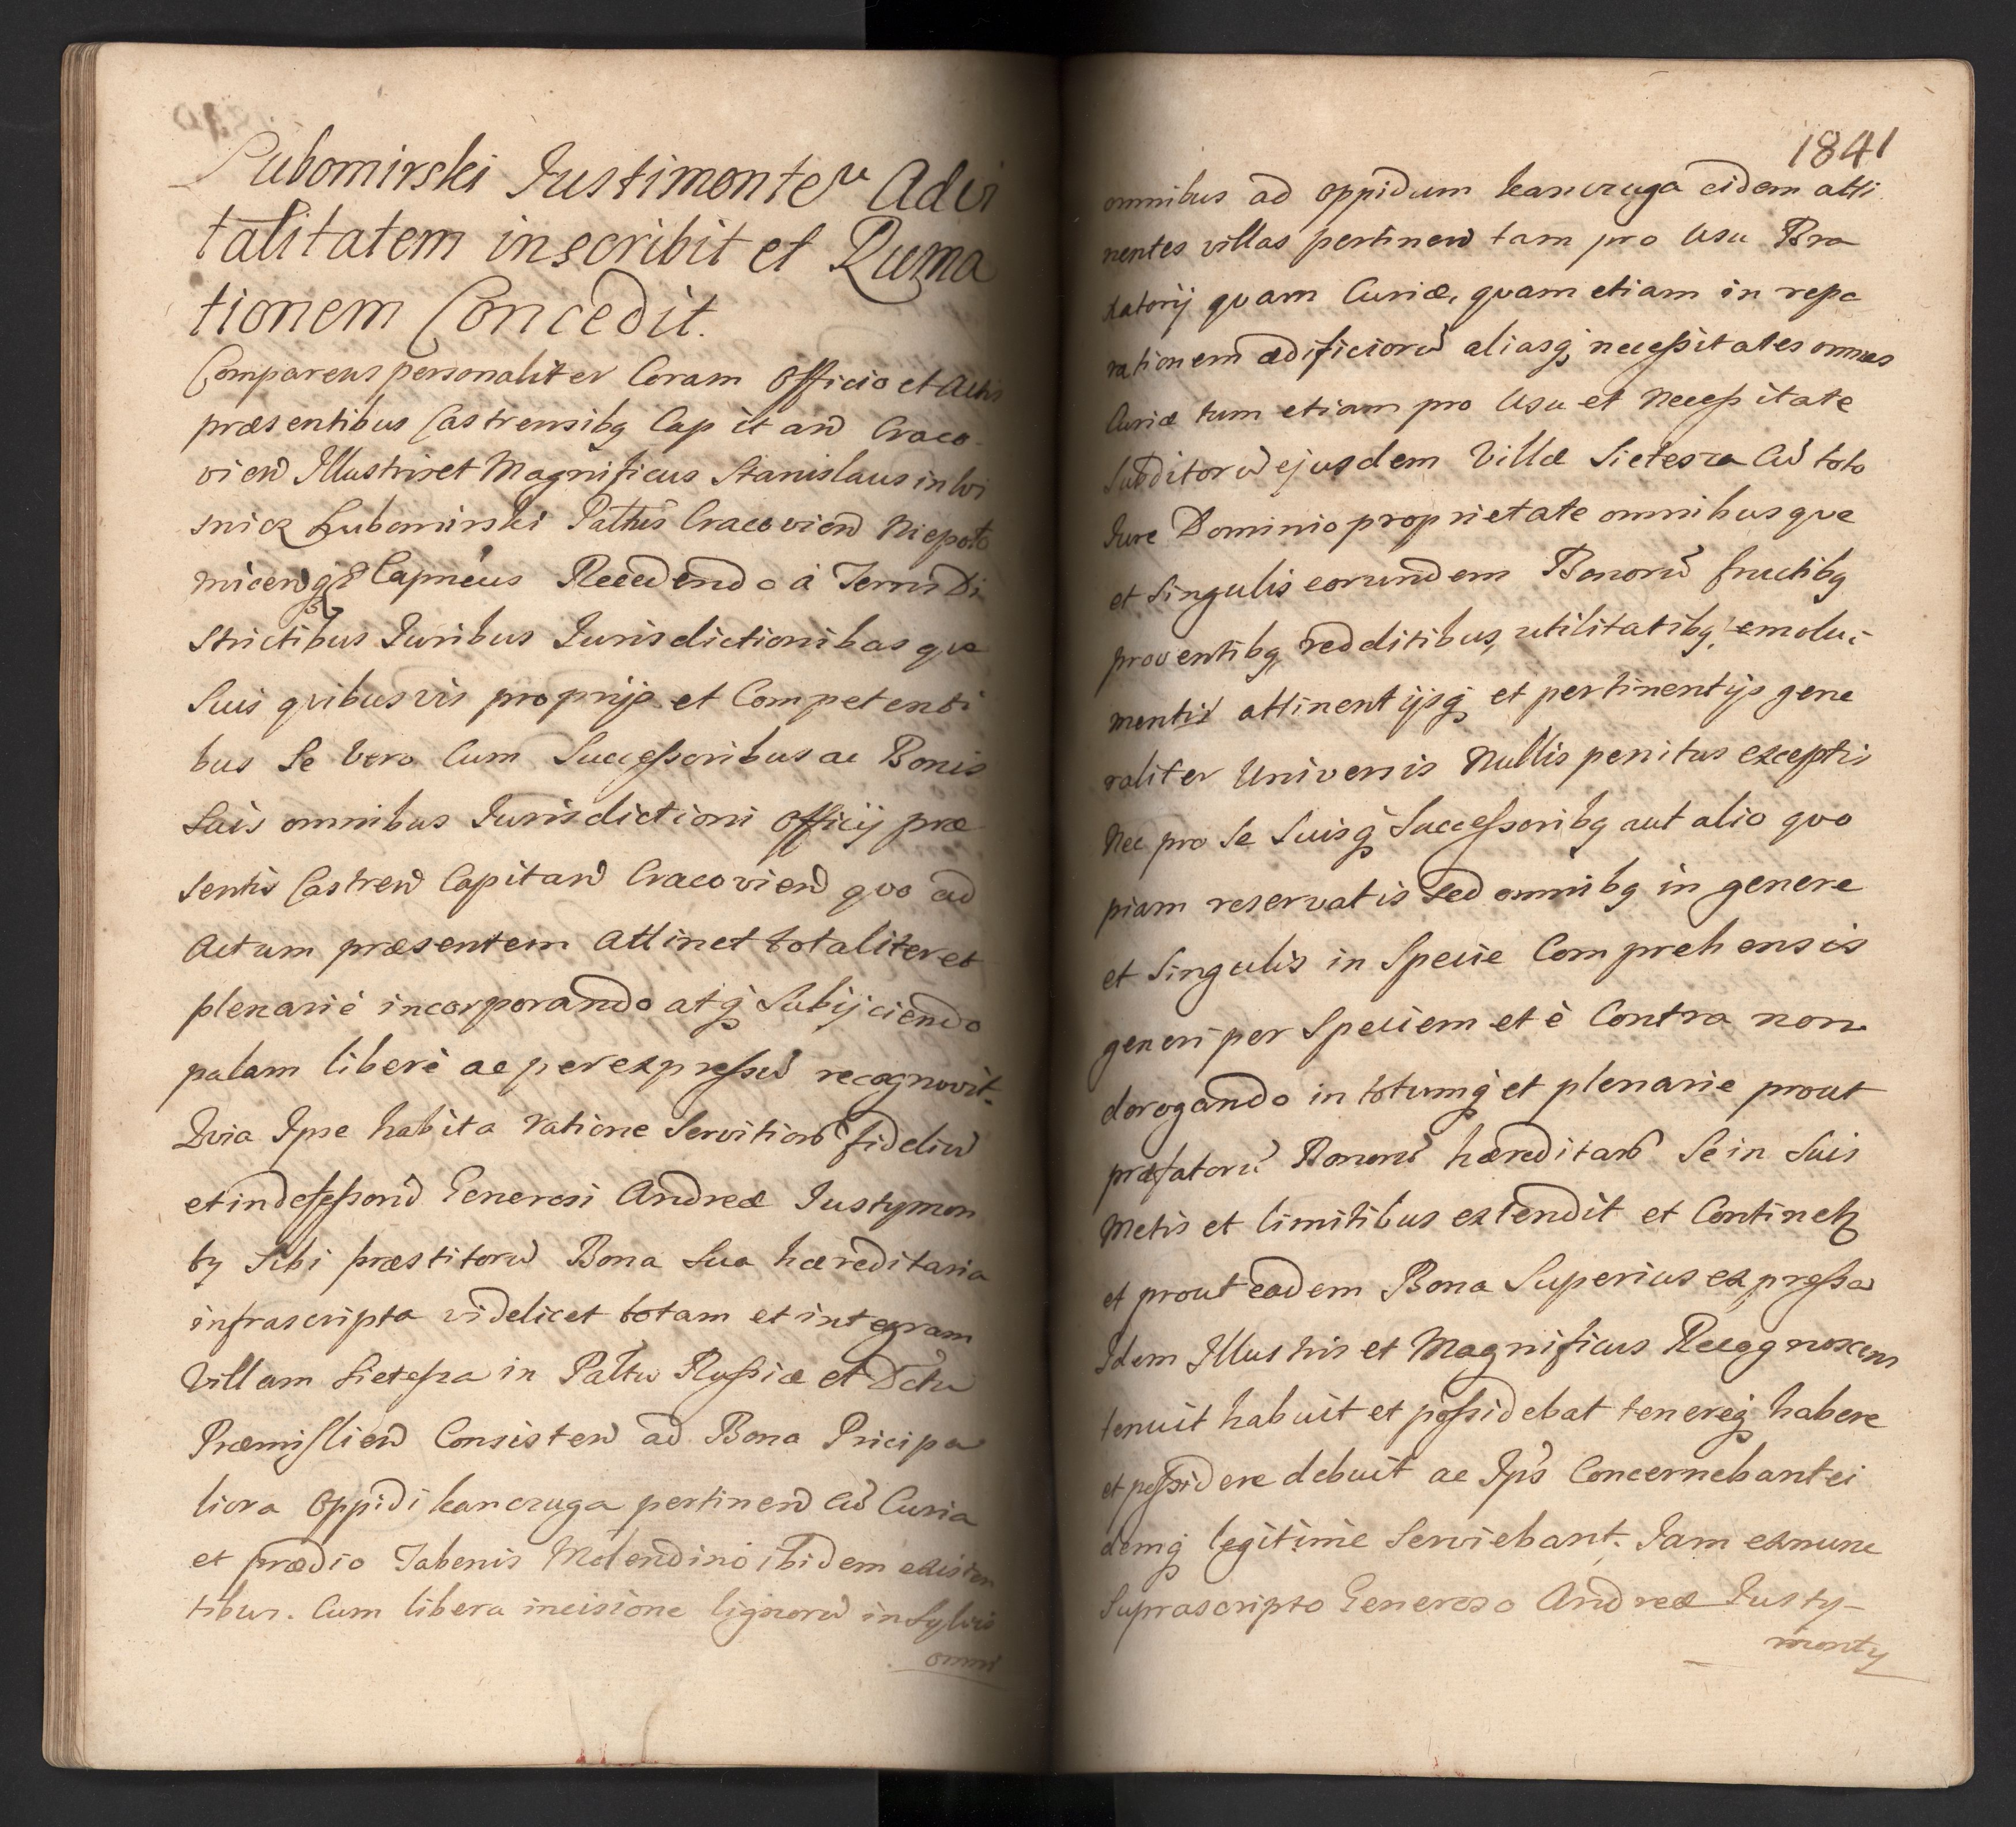 Lubomirski Justimonteͫ Advi
talitatem inscribit et Quma
tionem Concedit.
Comparens personaliter Coram Officio et Actis
præsentibus Castrensibꝫ Capitan̄ Craco-
vien̄ Illustris et Magnificus Stanislaus in Wi
snicz Lubomirski Palttūs Cracovien̄ Niepoło
micen̄ Capnéus Recedendo à Terris Di
strictibus Juribus Jurisdictionibasque
Suis qvibusvis proprijs et Competenti
bus Se vero Cum Successoribus ac Bonis
Suis omnibus Jurisdictioni Officij præ
sentis Castren̄ Capitan̄ Cracovien̄ qvo ad
Actum præsentem attinet totaliter et
plenariè incorporando atq̨ Subijciendo
palam liberè ac per expressū recognovit.
Qvia Ipse habita ratione Servitiorū fideliū
et indefessorū Generosi Andreæ Justymon
ty Sibi præstitorū Bona Sua hæreditaria
infrascripta videlicet totam et integram
Villam Sietesza in Palttū Russiæ et Dctū
Præmislien̄ Consisten̄ ad Bona Pricipa
liora Oppidi kanczuga pertinen̄ Cū Curia
et prædio Tabenis Molendino ibidem existen
tibus. Cum libera incisione lignorū in Sylvis
omni
1841
omnibus ad oppidum kanczuga eidem atti
nentes villas pertinen̄ tam pro Usu Bra
xatorij qvam Curiæ, qvam etiam in repa
rationem ædificiorū aliasq̨ necessitates omnes
Curiæ tum etiam pro Usu et Necessitate
Subditorū ejusdem Villæ Sietesza Cū toto
Jure Dominio proprietate omnibusque
et Singulis eorundem Bonorū fructibꝫ
proventibꝫ redditibus, utilitatibꝫ, emolu-
mentis attinentijsq̨ et pertinentijs gene
raliter Universis Nullis penitus exceptis
Nec pro Se Suisq̨ Successoribꝫ aut alio qvo
piam reservatis Sed omnibꝫ in genere
et Singulis in Specie Comprehensis
generi per Speciem et è Contra non
derogando in totumq̨ et plenarie prout
præfatorū Bonorū hæreditarū Se in Suis
Metis et limitibus extendit et Continetꝫ
et prout eadem Bona Superius expressa
Idem Illustris et Magnificus Recognoscens
tenuit habuit et possidebat tenereq̨ habere
et possidere debuit ac Ips̄ Concernebant ei
demq̨ legitime Serviebant. Jam exnunc
Suprascripto Generoso Andreæ Justy-
monty